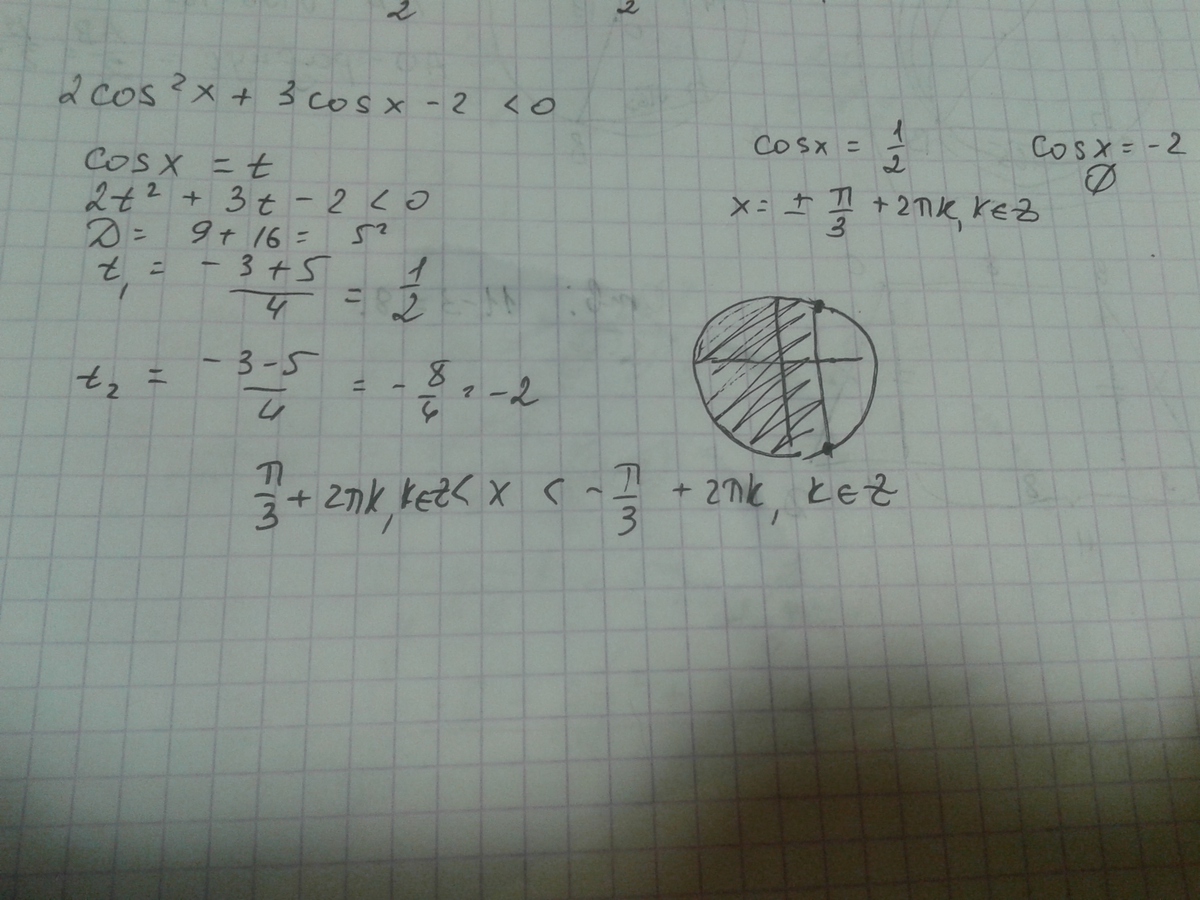 2 2
2cos²x + 3cosx - 2 < 0
cosx = t
2t² + 3t - 2 < 0
D = 9 + 16 = 5²
t₁ = \frac{-3+5}{4} = \frac{1}{2}
t₂ = \frac{-3-5}{4} = -\frac{8}{4} = -2
cosx = \frac{1}{2} cosx = -2
∅
x = ± \frac{π}{3} + 2πk, k∈Z
\frac{π}{3} + 2πk, k∈Z < x < -\frac{π}{3} + 2πk, k∈Z